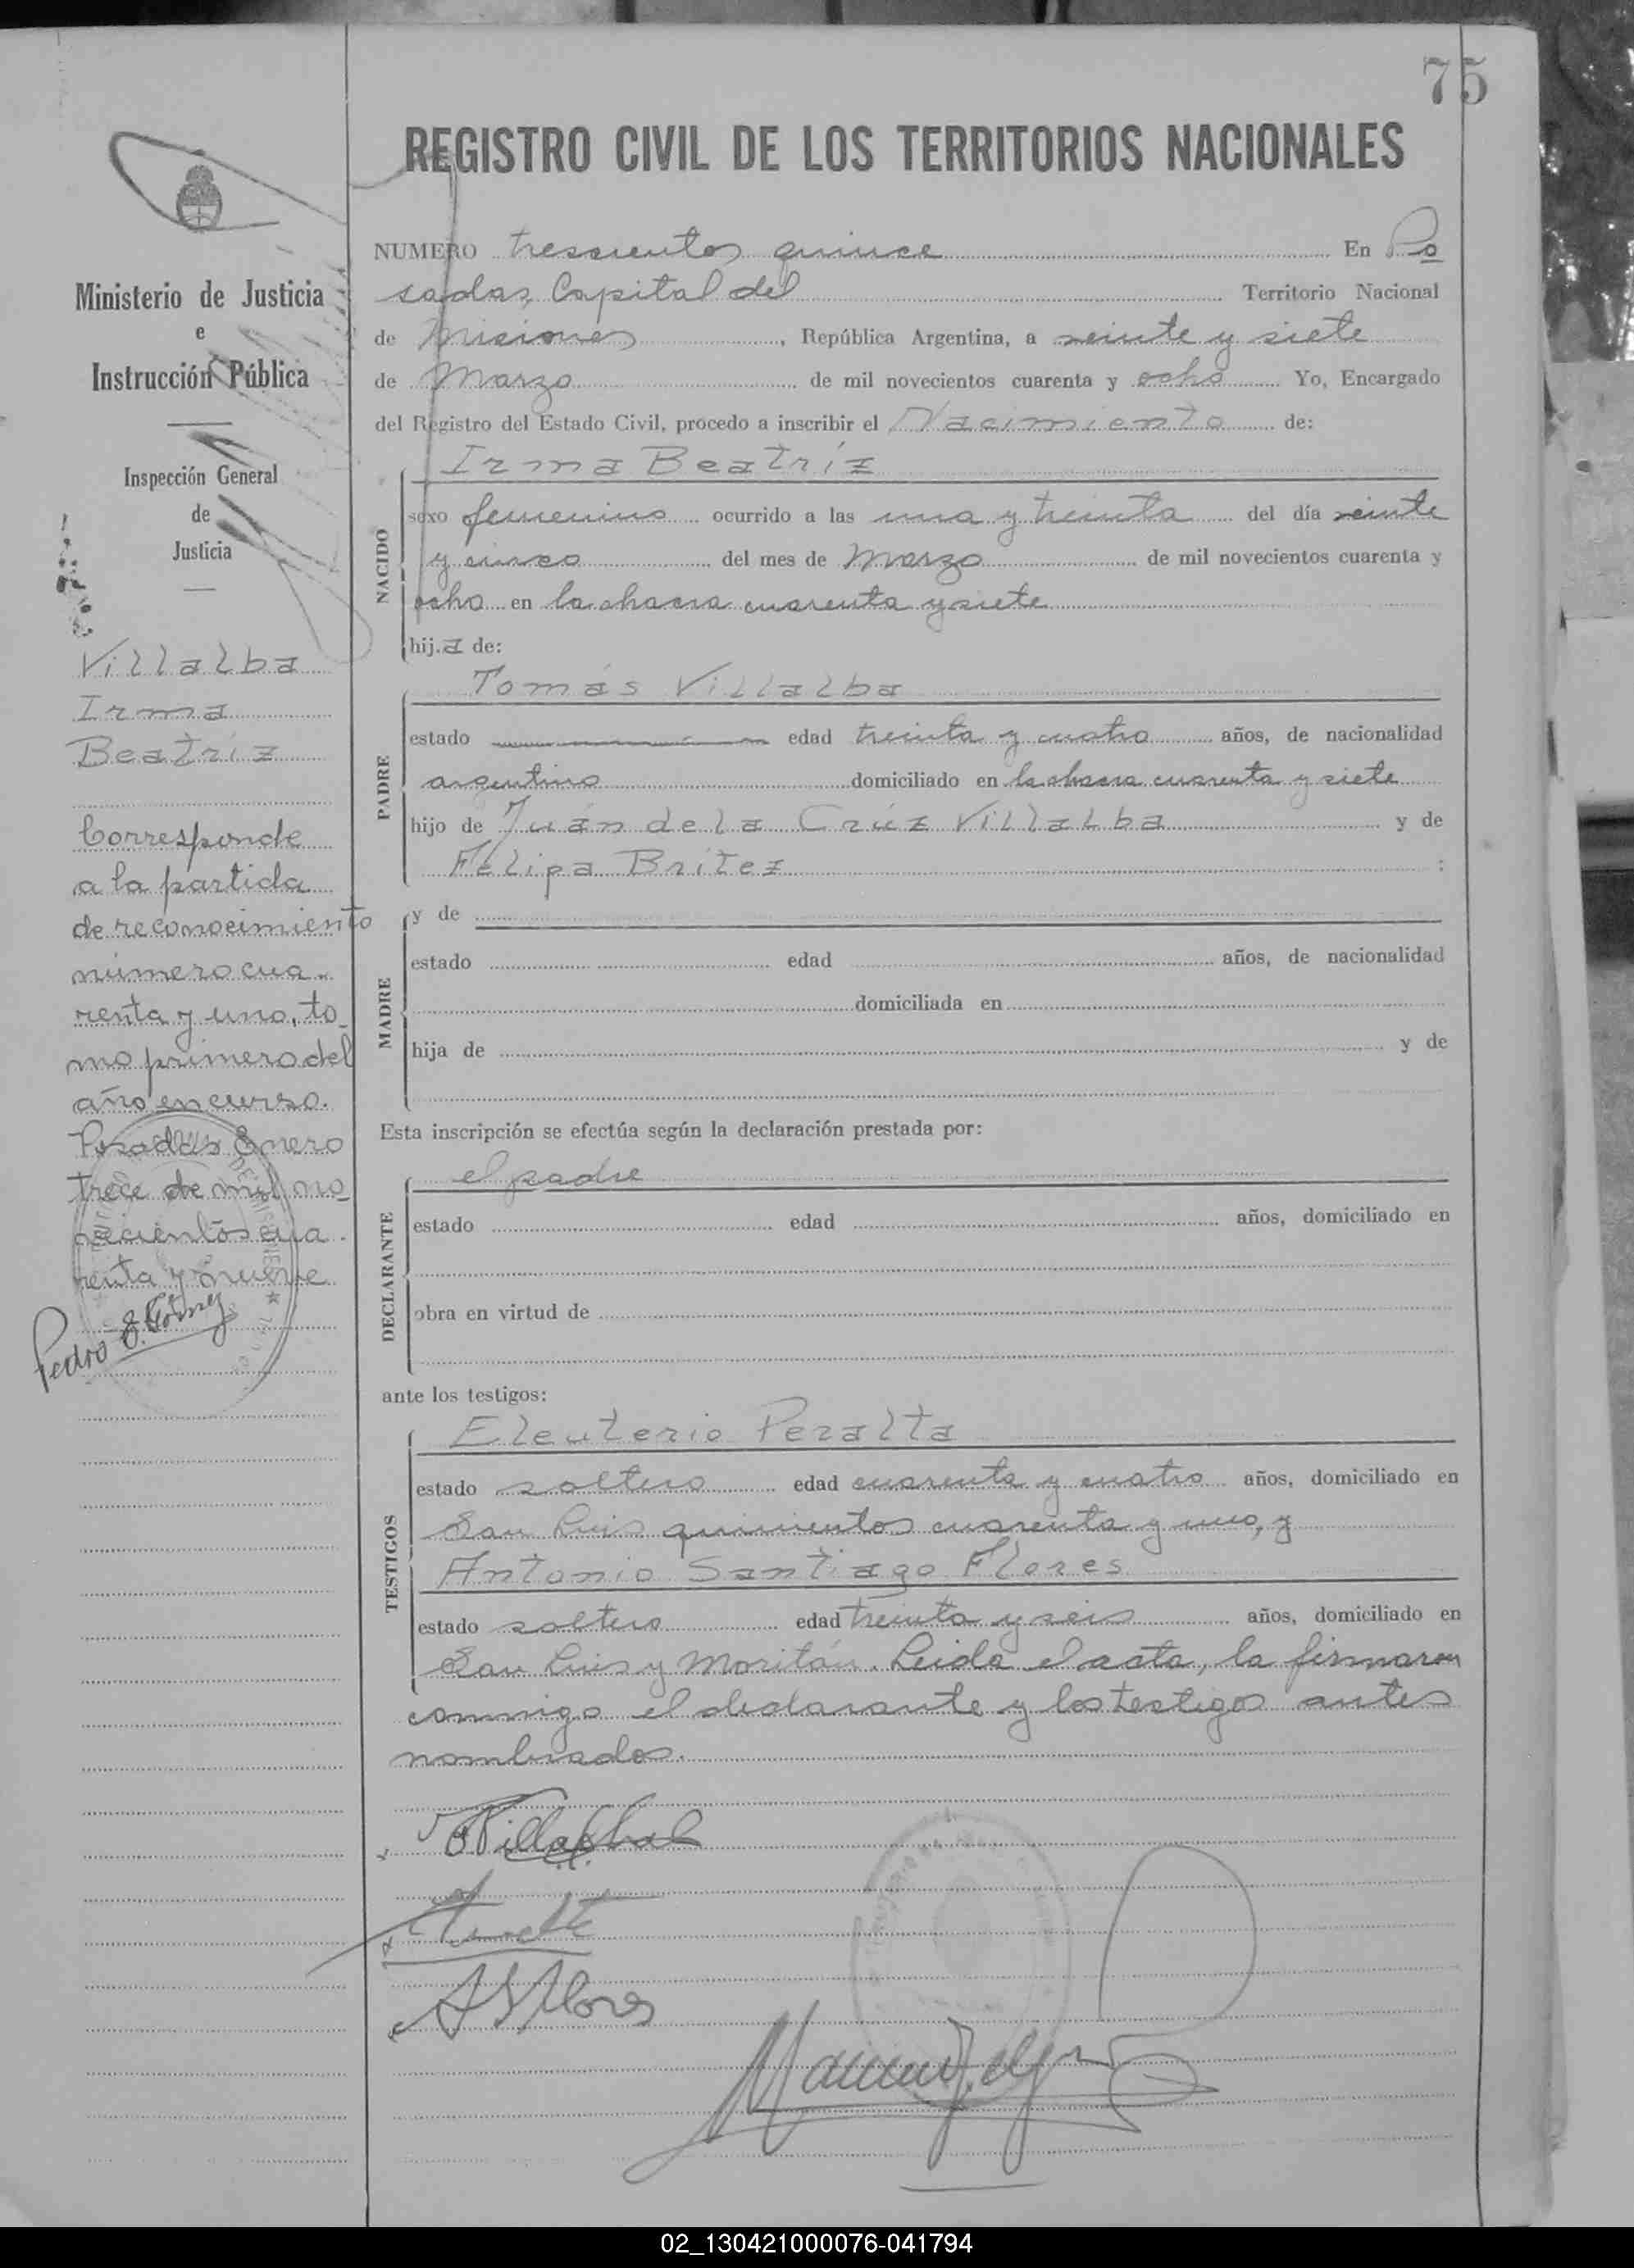 75
REGISTRO CIVIL DE LOS TERRITORIOS NACIONALES
NUMERO trescientos quince En Po
sadas, Capital del Territorio Nacional
de Misiones, República Argentina, a veinte y siete
de Marzo de mil novecientos cuarenta y ocho Yo, Encargado
del Registro del Estado Civil, procedo a inscribir el Nacimiento de:
Irma Beatríz
NACIDO
sexo femenino ocurrido a las una y treinta del día veinte
y cinco del mes de Marzo de mil novecientos cuarenta y
ocho en la chacra cuarenta y siete
hij.a de:
Tomás Villalba
PADRE
estado edad treinta y cuatro años, de nacionalidad
argentino domiciliado en la chacra cuarenta y siete
hijo de Juán de la Crúz Villalba y de
Felipa Britez :
MADRE
y de
estado edad años, de nacionalidad
domiciliada en
hija de y de
Esta inscripción se efectúa según la declaración prestada por:
el padre
DECLARANTE
estado edad años, domiciliado en
obra en virtud de
ante los testigos:
Eleuterio Peralta
TESTIGOS
estado soltero edad cuarenta y cuatro años, domiciliado en
San Luis quinientos cuarenta y uno, y
Antonio Santiago Flores
estado soltero edad treinta y seis años, domiciliado en
San Luis y Moritán. Leida el acta, la firmaron
conmigo el declarante y los testigos antes
nombrados.
A S Flores
Ministerio de Justicia
e
Instrucción Pública
Inspección General
de
Justicia
Villalba
Irma
Beatríz
Corresponde
a la partida
de reconocimiento
número cua-
renta y uno, to-
mo primero del
año en curso.
Posadas Enero
trece de mil no-
vecientos cua-
renta y nueve
Pedro E. Gómez
02_130421000076-041794